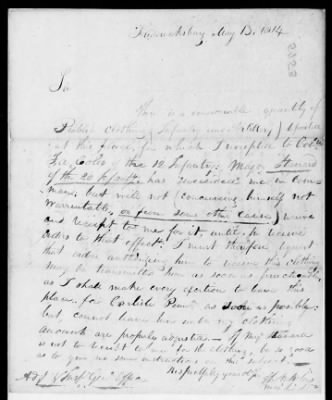 Fredericksburg May 13, 1814
Sir
There is a considerable quantity of
Public clothing (Infantry and Artillery) deposited
at this place, for which I receipted to Col
Coles of the 12 Infantry. Major Stanard
of the 20 Infantry has succeeded me in com-
mand, but will not (conceiving himself not
warrantable, or from some other cause) receive
and receipt to me for it, until he receive
orders to that effect. I must therefore request
that orders authorising him to receive this clothing
may be transmitted him as soon as practicable
as I shall make every exertion to leave this
place for Carlisle Penn as soon as possible
but cannot leave here until my clothing
accounts are properly adjusted. If Maj Stanard
is not to receipt to me for the clothing, be so good
as to give me some instructions on this subject.
Respectfully your obt